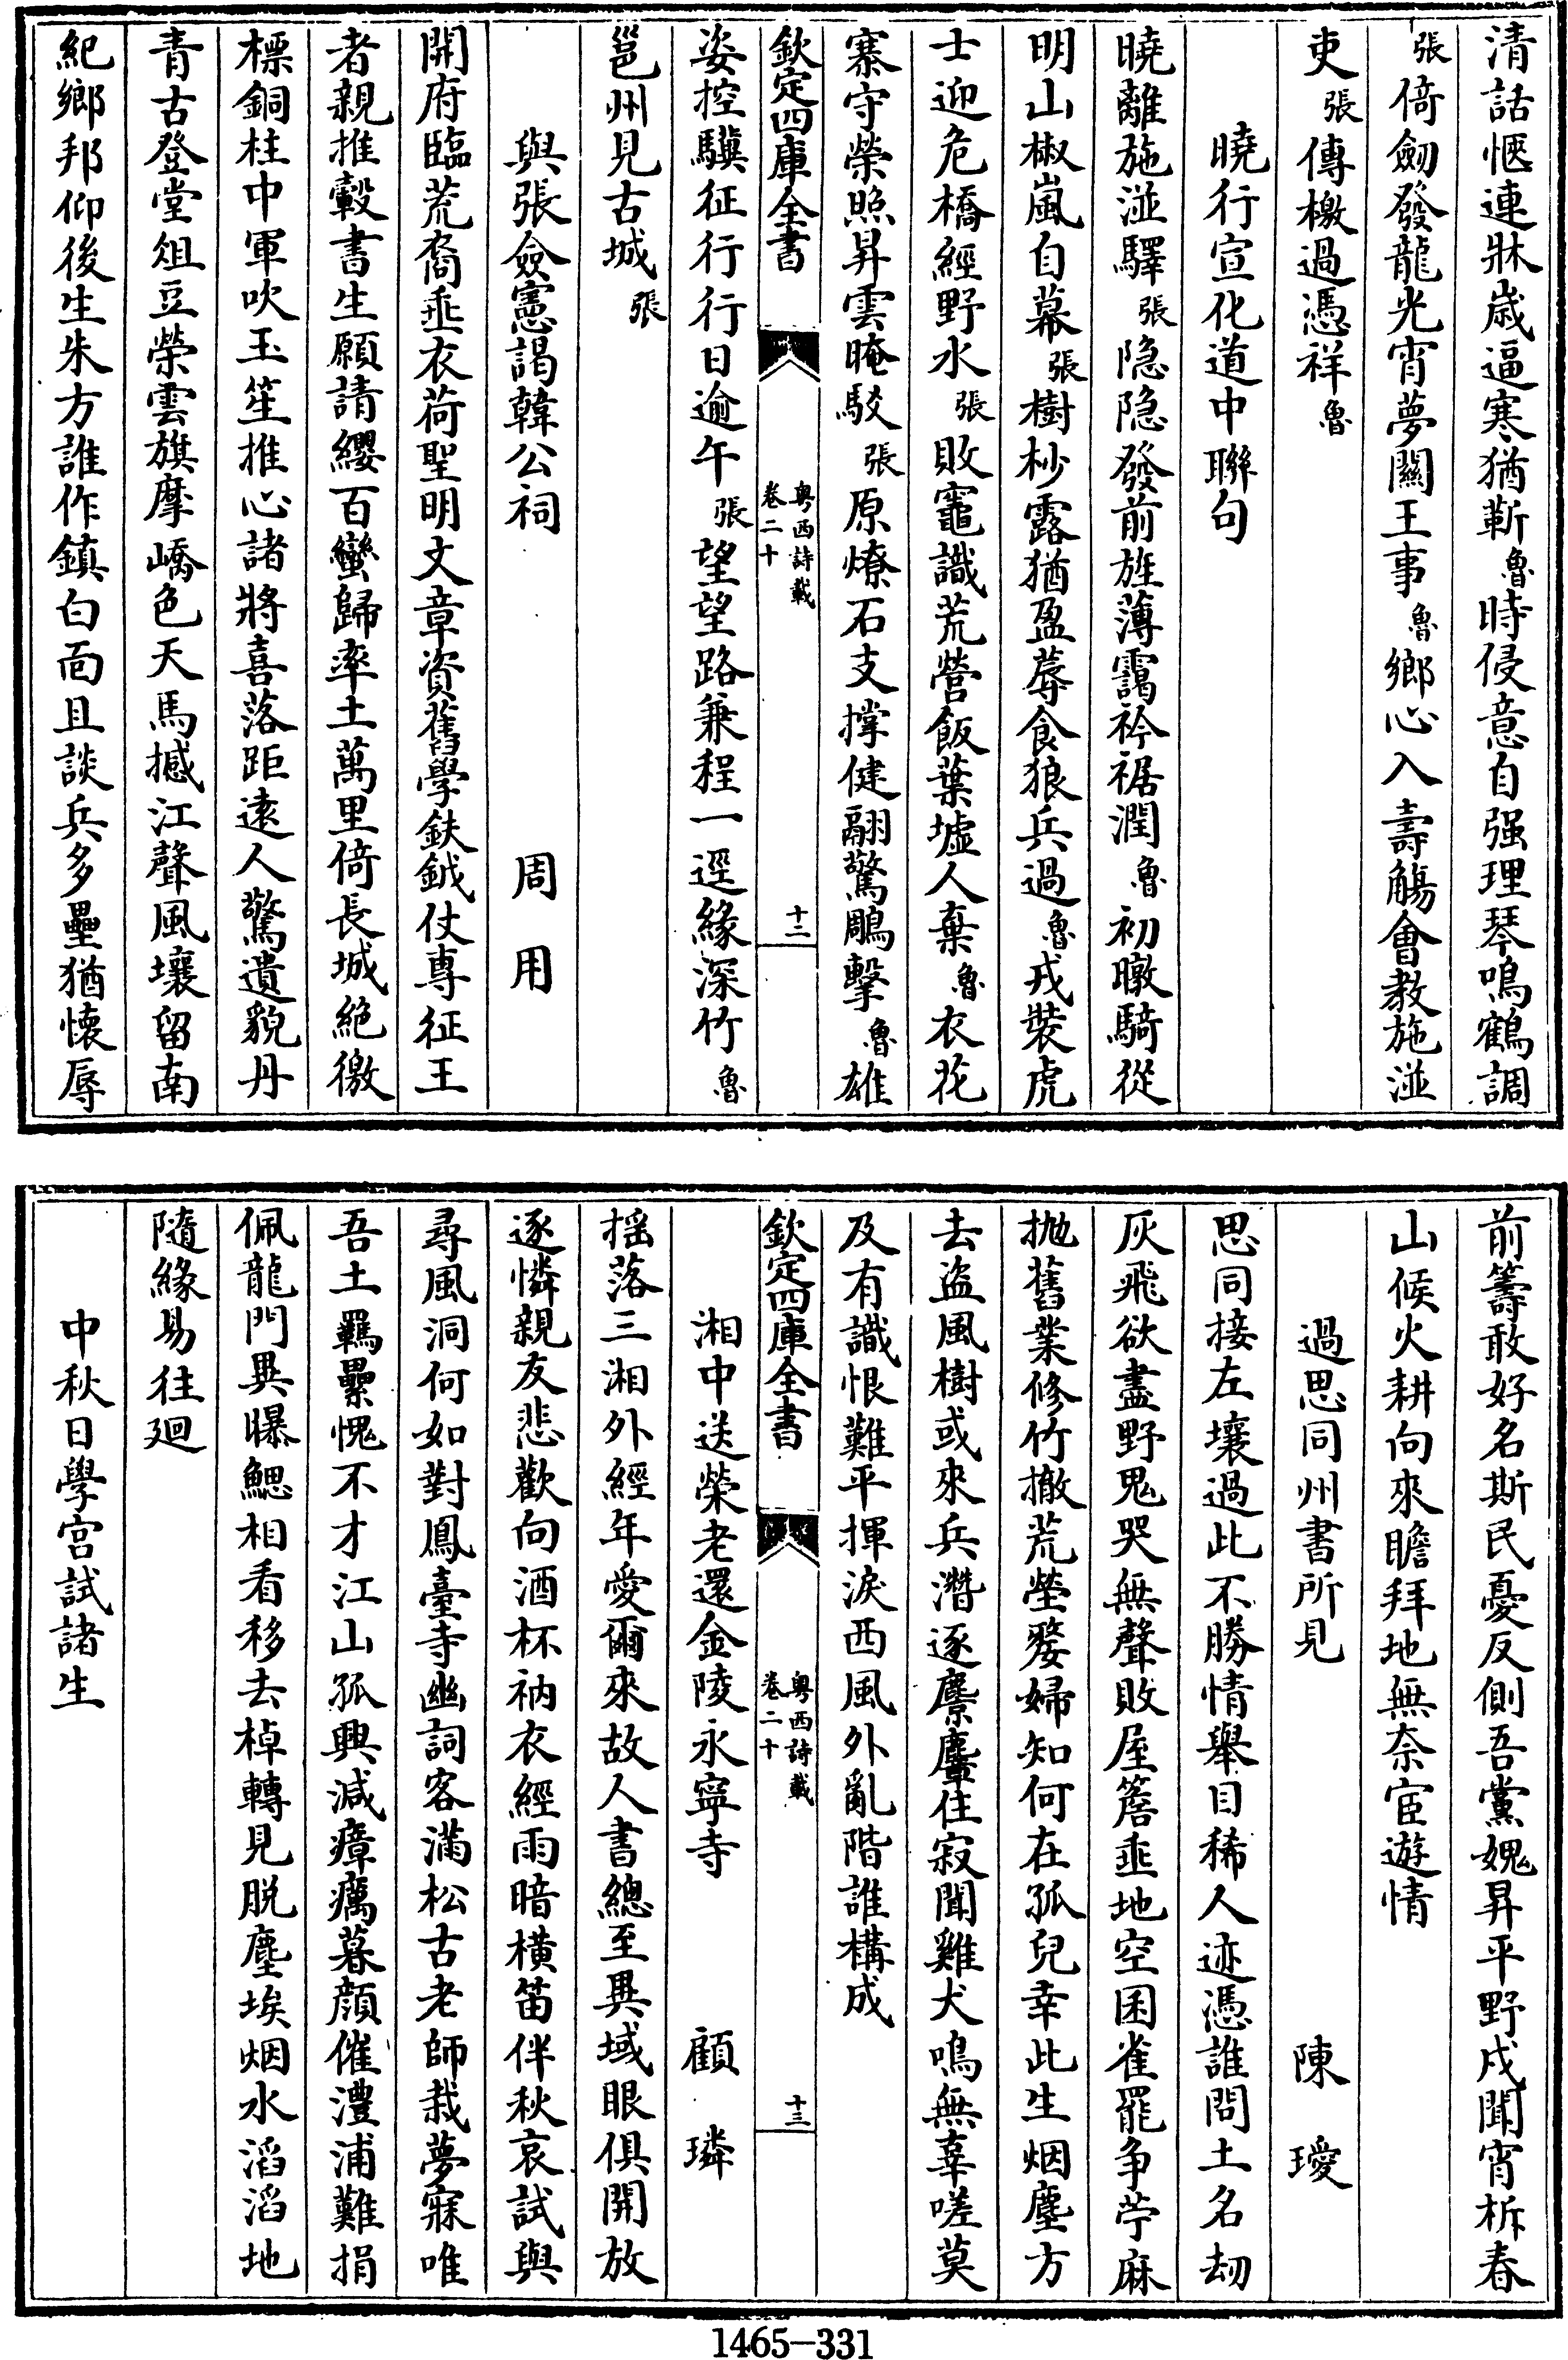 清話愜連牀歲逼寒猶靳魯時侵意自强理琴鳴鶴調
張倚劒發龍光宵夢關王事魯鄉心入壽觴會教施湴
吏張傳檄過憑祥魯
曉行宣化道中聯句
曉離施湴驛張隐隐發前旌薄靄衿裾潤魯初暾騎從
明山椒嵐自幕張樹杪露猶盈蓐食狼兵過魯戎裝虎
士迎危橋經野水張敗竈識荒營飯葉墟人棄魯衣花
寨守榮照昇雲晻駁張原燎石支撐健翮驚鵰擊魯雄
欽定四庫全書
粤西詩載
卷二十
十二
姿控驥征行行日逾午張望望路兼程一逕緣深竹魯
邕州見古城張
與張僉憲謁韓公祠 周用
開府臨荒裔垂衣荷聖明文章資舊學鈇鉞仗專征王
者親推轂書生願請纓百蠻歸率土萬里倚長城絶徼
標銅柱中軍吹玉笙推心諸將喜落距遠人驚遺貌丹
青古登堂俎豆榮雲旗摩嶠色天馬撼江聲風壤留南
紀鄉邦仰後生朱方誰作鎮白面且談兵多壘猶懷辱
前籌敢好名斯民憂反側吾黨媿昇平野戍聞宵柝春
山候火耕向來瞻拜地無奈宦遊情
過思同州書所見 陳瓊
思同接左壤過此不勝情舉目稀人迹憑誰問土名刼
灰飛欲盡野鬼哭無聲敗屋簷垂地空囷雀罷争苧麻
抛舊業修竹撤荒塋嫠婦知何在孤兒幸此生烟塵方
去盜風樹或來兵濳逐麖麏住寂聞雞犬鳴無辜嗟莫
及有識恨難平揮淚西風外亂階誰構成
欽定四庫全書
粤西詩載
卷二十
十三
湘中送榮老還金陵永寧寺 顧璘
揺落三湘外經年愛爾來故人書總至異域眼俱開放
逐憐親友悲歡向酒杯衲衣經雨暗横笛伴秋哀試與
尋風洞何如對鳳臺寺幽詞客滿松古老師栽夢寐唯
吾土羈纍愧不才江山孤興減瘴癘暮顔催澧浦難捐
佩龍門異曝鰓相看移去棹轉見脱塵埃烟水滔滔地
隨緣易往廻
中秋日學宫試諸生
1465-331